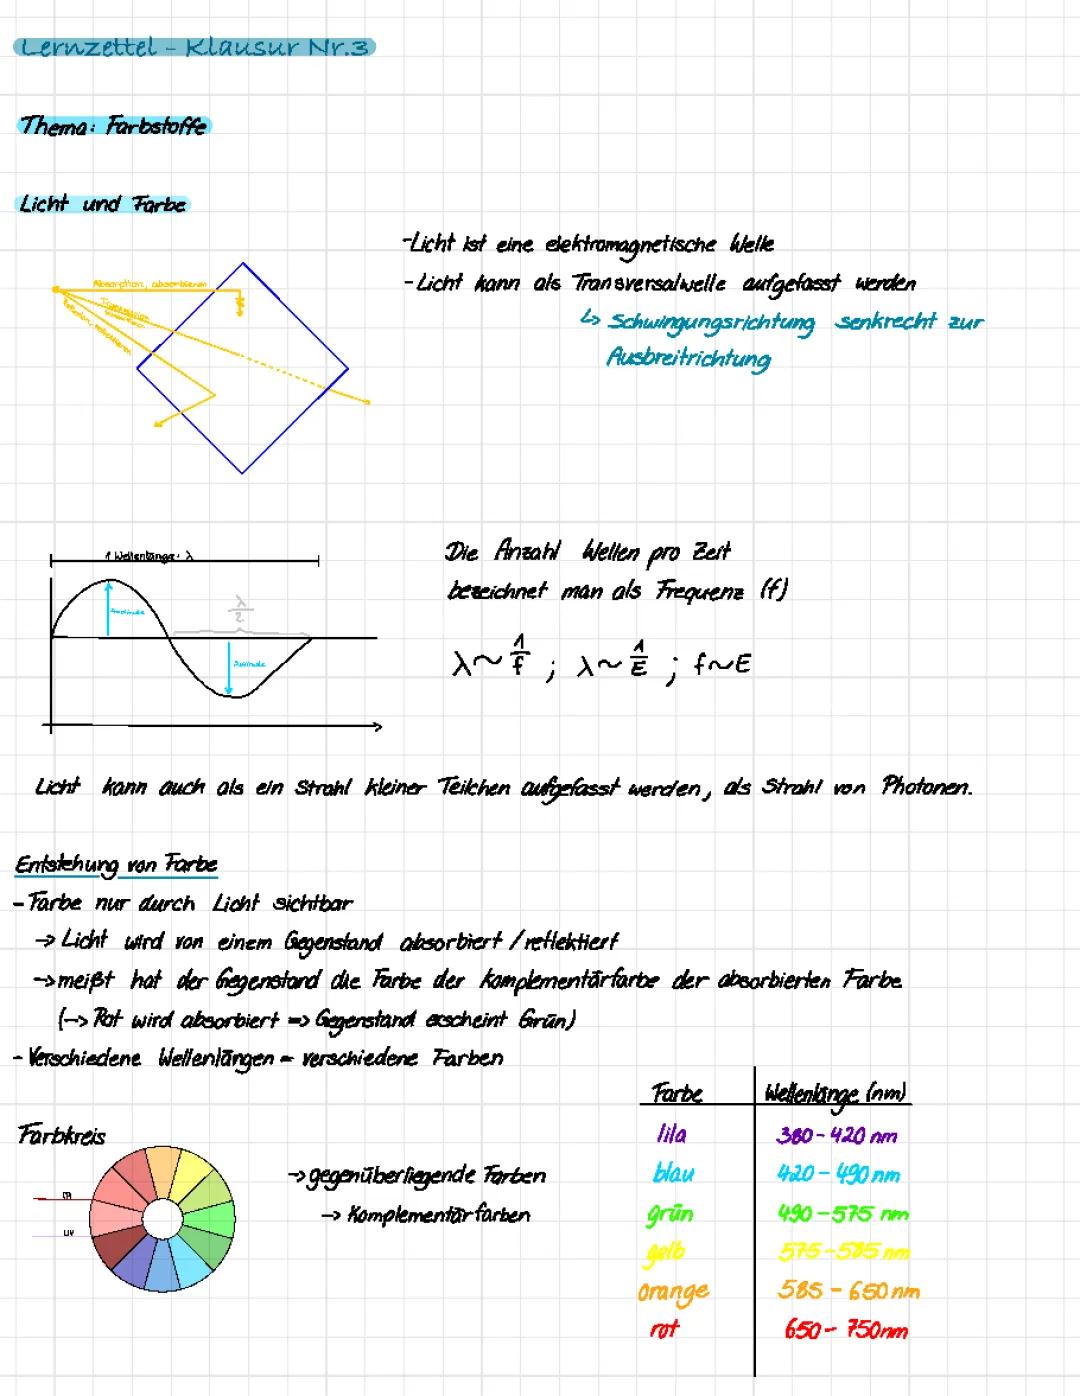 Lernzettel - Klausur Nr.3
Thema: Farbstoffe
Licht und Farbe
-Licht ist eine elektromagnetische Welle
-Licht kann als Transversalwelle aufgefasst werden
↳ Schwingungsrichtung senkrecht zur
Ausbreitrichtung
Absorption, absorbieren
1 Wellenlänge: λ
Amplitude
λ/2
Amplitude
Die Anzahl Wellen pro Zeit
bezeichnet man als Frequenz (f)
λ~1/f ; λ~1/E ; f~E
Licht kann auch als ein Strahl kleiner Teilchen aufgefasst werden, als Strahl von Photonen.
Entstehung von Farbe
- Farbe nur durch Licht sichtbar
→ Licht wird von einem Gegenstand absorbiert / reflektiert
→ meißt hat der Gegenstand die Farbe der Komplementärfarbe der absorbierten Farbe
(→ Rot wird absorbiert => Gegenstand erscheint Grün)
- Verschiedene Wellenlängen = verschiedene Farben
Farbe Wellenlänge (nm)
lila 380-420 nm
blau 420-490 nm
grün 490-575 nm
gelb 575-585 nm
orange 585-650 nm
rot 650-750nm
Farbkreis
IR
UV
→ gegenüberliegende Farben
→ Komplementärfarben